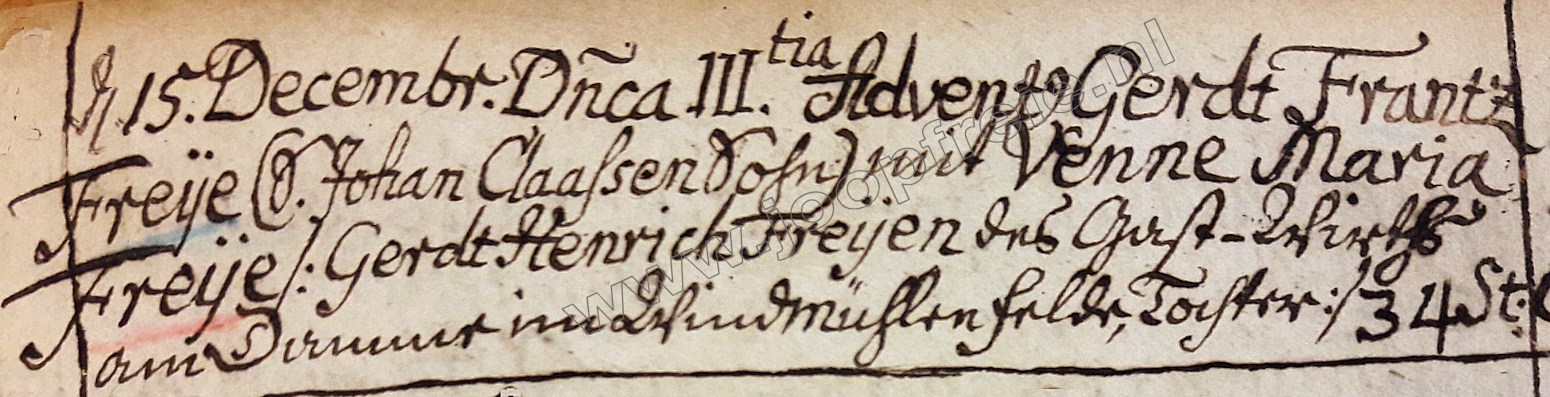 d. 15. Decembr. Dn̄ca III.tia Advents Gerdt Frantz
Freÿe (S. Johan Claassen Sohn) mit Venne Maria
Freÿe /: Gerdt Henrich Freÿen des Gast-Wirths
am Damme im Windmühlenfelde, Tochter :/ 34 St:
www.joopfreije.nl